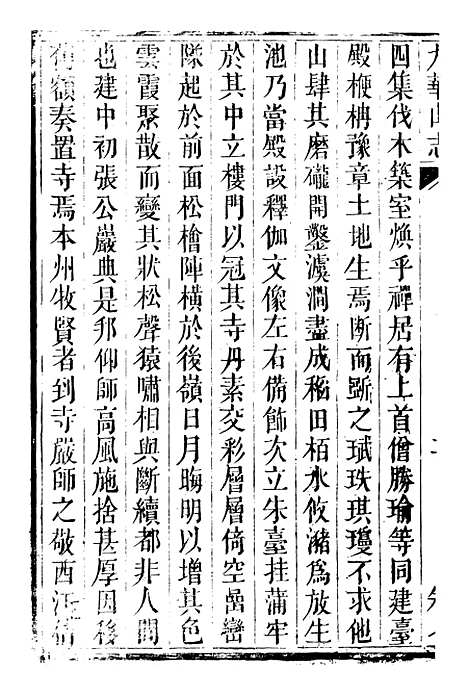 九華山志
四集伐木築室煥乎禪居有上首僧勝瑜等同建臺
殿楩柟豫章土地生焉斷而斲之珷玞琪瓊不求他
山肆其磨礲開鑿溝澗盡成稻田栢水攸瀦為放生
池乃當殿設釋伽文像左右備飾次立朱臺挂蒲牢
於其中立樓門以冠其寺丹素交彩層層倚空嵒巒
隊起於前面松檜陣橫於後嶺日月晦明以增其色
雲霞聚散而變其狀松聲猿嘯相與斷續都非人間
也建中初張公嚴典是邦仰師高風施捨甚厚因
舊額奏置寺焉本州牧賢者到寺嚴師之敬西江